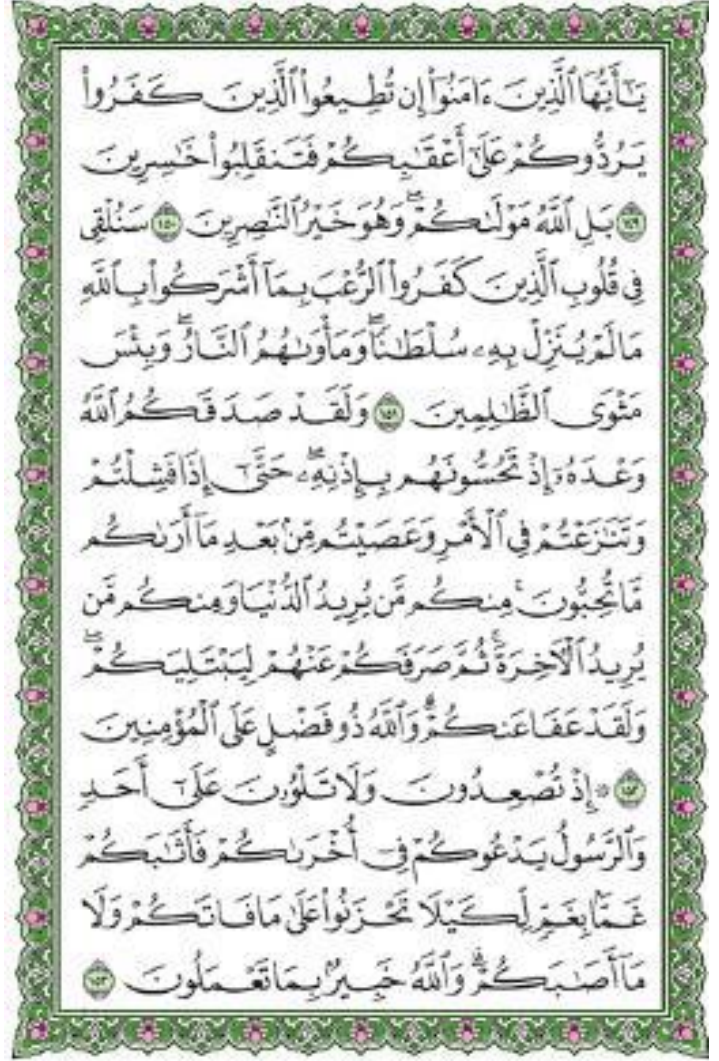 يَـٰٓأَيُّهَا ٱلَّذِينَ ءَامَنُوٓا۟ إِن تُطِيعُوا۟ ٱلَّذِينَ كَفَرُوا۟
يَرُدُّوكُمْ عَلَىٰٓ أَعْقَـٰبِكُمْ فَتَنقَلِبُوا۟ خَـٰسِرِينَ
١٤٩ بَلِ ٱللَّهُ مَوْلَىٰكُمْ ۖ وَهُوَ خَيْرُ ٱلنَّـٰصِرِينَ ١٥٠ سَنُلْقِى
فِى قُلُوبِ ٱلَّذِينَ كَفَرُوا۟ ٱلرُّعْبَ بِمَآ أَشْرَكُوا۟ بِٱللَّهِ
مَا لَمْ يُنَزِّلْ بِهِۦ سُلْطَـٰنًا ۖ وَمَأْوَىٰهُمُ ٱلنَّارُ ۖ وَبِئْسَ
مَثْوَى ٱلظَّـٰلِمِينَ ١٥١ وَلَقَدْ صَدَقَكُمُ ٱللَّهُ
وَعْدَهُۥٓ إِذْ تَحُسُّونَهُم بِإِذْنِهِۦ ۖ حَتَّىٰٓ إِذَا فَشِلْتُمْ
وَتَنَـٰزَعْتُمْ فِى ٱلْأَمْرِ وَعَصَيْتُم مِّنۢ بَعْدِ مَآ أَرَىٰكُم
مَّا تُحِبُّونَ ۚ مِنكُم مَّن يُرِيدُ ٱلدُّنْيَا وَمِنكُم مَّن
يُرِيدُ ٱلْـَٔاخِرَةَ ۚ ثُمَّ صَرَفَكُمْ عَنْهُمْ لِيَبْتَلِيَكُمْ ۖ
وَلَقَدْ عَفَا عَنكُمْ ۗ وَٱللَّهُ ذُو فَضْلٍ عَلَى ٱلْمُؤْمِنِينَ
١٥٢ ۞ إِذْ تُصْعِدُونَ وَلَا تَلْوُۥنَ عَلَىٰٓ أَحَدٍ
وَٱلرَّسُولُ يَدْعُوكُمْ فِىٓ أُخْرَىٰكُمْ فَأَثَـٰبَكُمْ
غَمًّۢا بِغَمٍّ لِّكَيْلَا تَحْزَنُوا۟ عَلَىٰ مَا فَاتَكُمْ وَلَا
مَآ أَصَـٰبَكُمْ ۗ وَٱللَّهُ خَبِيرٌۢ بِمَا تَعْمَلُونَ ١٥٣